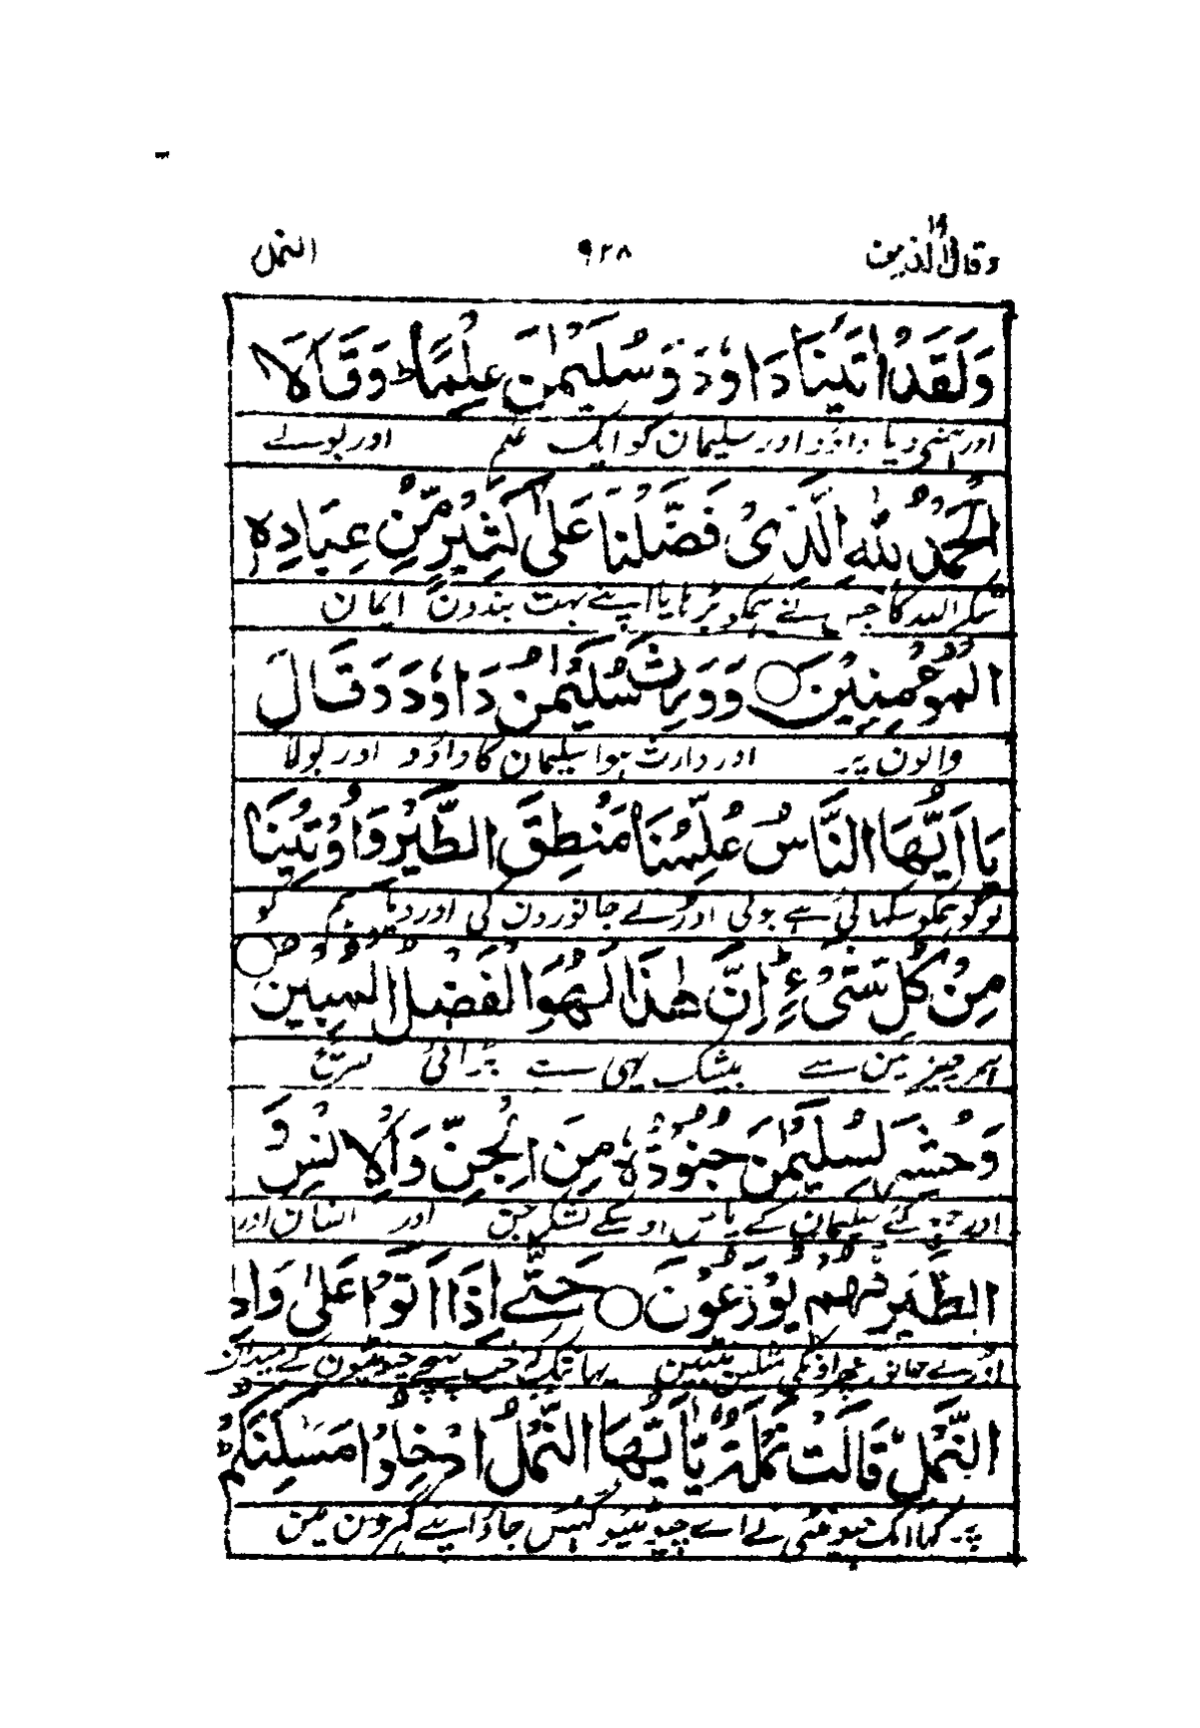 وقال الذین ۱۹ ۹۲۸ النمل
وَلَقَدْ اٰتَيْنَا دَاوٗدَ وَسُلَيْمٰنَ عِلْمًا ۚ وَقَالَا
اور ہمنی دیا داؤد اور سلیمان کو ایک علم اور بولے
الْحَمْدُ لِلّٰهِ الَّذِیْ فَضَّلَنَا عَلٰی كَثِيْرٍ مِّنْ عِبَادِهِ
شکر اللہ کا جس نے ہمکو بڑہایا اپنے بہت بندون ایمان
الْمُؤْمِنِيْنَ ○ وَوَرِثَ سُلَيْمٰنُ دَاوٗدَ وَقَالَ
والون پر اور وارث ہوا سلیمان کا داؤد اور بولا
يٰاَ اَيُّهَا النَّاسُ عُلِّمْنَا مَنْطِقَ الطَّيْرِ وَاُوْتِيْنَا
لوگو ہمکو سکہائی ہے بولی اوڑتے جانورون کی اور دیا ہم کو
مِنْ كُلِّ شَیْءٍ ۚ اِنَّ هٰذَا لَهُوَ الْفَضْلُ الْمُبِيْنُ ○
ہر چیز مین سے بیشک یہی ہے بڑائی صریح
وَحُشِرَ لِسُلَيْمٰنَ جُنُوْدُهٗ مِنَ الْجِنِّ وَالْاِنْسِ وَ
اور جمع کئے سلیمان کے پاس اوسکے لشکر جن اور انسان اور
الطَّيْرِ فَهُمْ يُوْزَعُوْنَ ○ حَتّٰۤی اِذَا اَتَوْا عَلٰی وَادِ
اوڑتے جانور پہر اونکی مثلین بٹتین یہانتک کہ جب پہنچے چیونٹیون کے میدان
النَّمْلِ قَالَتْ نَمْلَةٌ يّٰاَيُّهَا النَّمْلُ ادْخُلُوْا مَسٰكِنَكُمْ
پر کہا ایک چیونٹی نے اے چیونٹیو گہس جاؤ اپنے گہرون مین